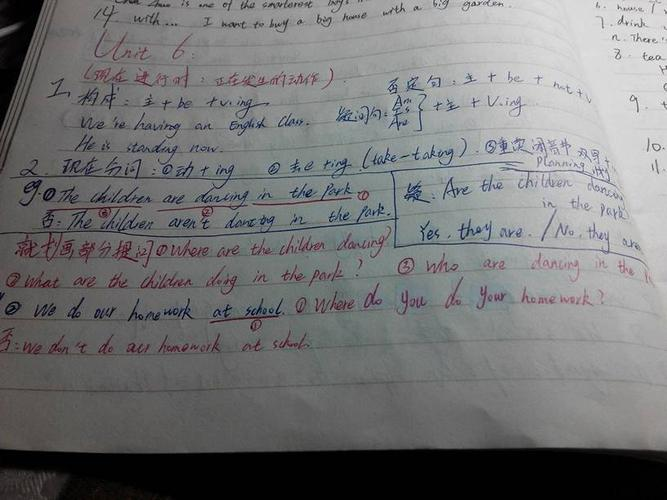 is one of the smartest boys
14. with... I want to buy a big house with a big garden.
Unit 6:
(现在进行时:正在发生的动作)
1. 构成:主+be+v.ing
否定句:主+be+not+v
We're having an English class.
疑问句:Am Is Are}+主+V.ing
He is standing now.
2. 现在分词:①动+ing ②去e+ing (take-taking) ③重读闭音节 双写
planning
eg.①The children are dancing in the Park.①
③ ②
否:The children aren't dancing in the park.
疑:Are the children dancing
in the park
Yes, they are. / No, they are
就划画部分提问①Where are the children dancing?
②What are the children doing in the park? ③Who are dancing in the
②We do our homework at school. ①Where do you do your homework?
①
否:We don't do our homework at school.
6. house
7. drink
n. There
8. tea
9.
10.
11.